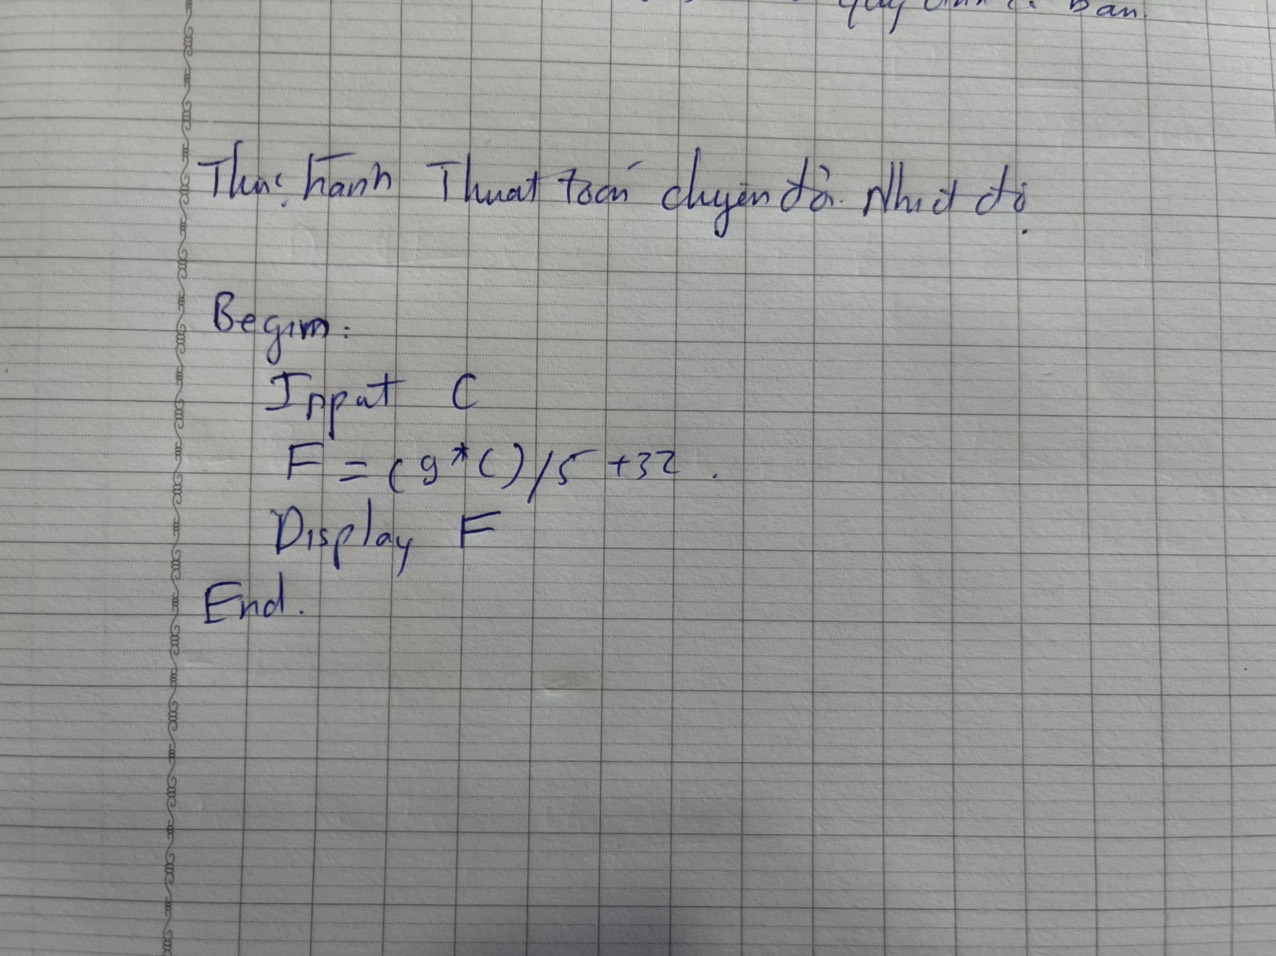 quy định cơ bản.
Thực hành Thuật toán chuyển đổi Nhiệt độ
Begin:
Input C
F = (9*C)/5 +32.
Display F
End.